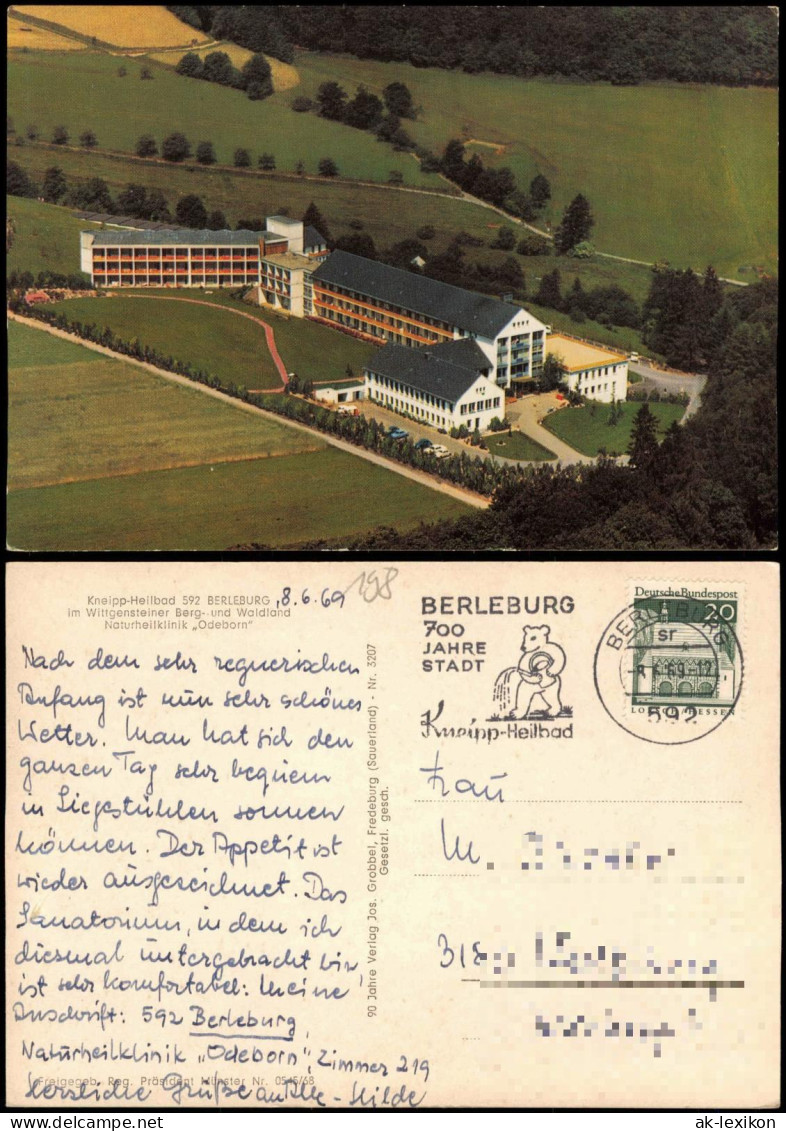 Kneipp-Heilbad 592 BERLEBURG
im Wittgensteiner Berg- und Waldland
Naturheilklinik „Odeborn“
8.6.69
198
Nach dem sehr regnerischen
Anfang ist nun sehr schönes
Wetter. Man hat sich den
ganzen Tag sehr bequem
in Liegestühlen sonnen
können. Der Appetit ist
wieder ausgezeichnet. Das
Sanatorium, in dem ich
diesmal untergebracht bin,
ist sehr komfortabel: Meine
Anschrift: 592 Berleburg,
Naturheilklinik „Odeborn“, Zimmer 219
Herzliche Grüße an Alle - Hilde
Freigegeb. Reg. Präsident Münster Nr. 0545/68
90 Jahre Verlag Jos. Grobbel, Fredeburg (Sauerland) - Nr. 3207
Gesetzl. gesch.
BERLEBURG
700
JAHRE
STADT
Kneipp-Heilbad
BERLEBURG
sr
.6.69-12
592
Deutsche Bundespost
20
Frau
M.
318
ak-lexikon.de